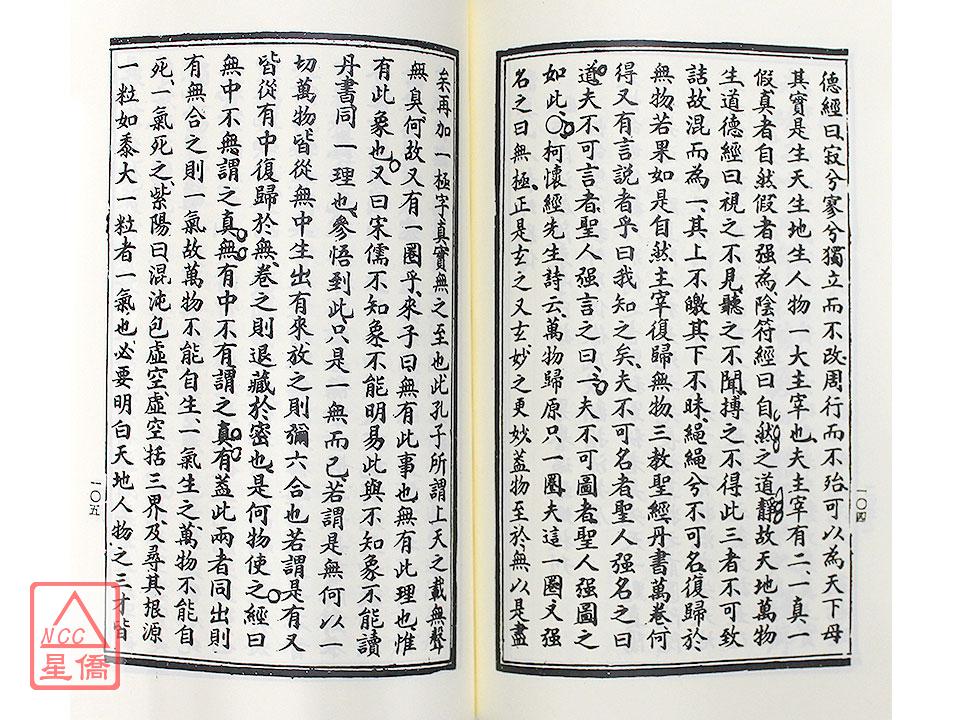 德經曰、寂兮寥兮獨立而不改、周行而不殆、可以為天下母
其實是生天生地生人物一大主宰也、夫主宰有二、一真一
假真者自然假者强為、陰符經曰、自然之道靜、故天地萬物
生、道德經曰、視之不見、聽之不聞、搏之不得、此三者不可致
詰、故混而為一、其上不皦、其下不昧、繩繩兮不可名、復歸於
無物、若果如是、自然主宰復歸無物、三教聖經丹書萬卷何
得又有言說者乎、曰我知之矣、夫不可名者、聖人强名之曰
道、夫不可言者、聖人强言之曰一、夫不可圖者、聖人强圖之
如此、〇柯懷經先生詩云、萬物歸原只一圈、夫這一圈又强
名之曰無極、正是玄之又玄妙之更妙、蓋物至於無以是盡
一〇四
矣、再加一極字、真實無之至也、此孔子所謂上天之載無聲
無臭、何故又有一圈乎、來子曰、無有此事也、無有此理也、惟
有此象也、又曰、宋儒不知象、不能明易、此與不知象不能讀
丹書同一理也、參悟到此、只是一無而已、若謂是無、何以一
切萬物皆從無中生出有來、放之則彌六合也、若謂是有、又
皆從有中復歸於無、卷之則退藏於密也、是何物使之、經曰
無中不無謂之真無、有中不有謂之真有、蓋此兩者同出則
有無合之則一氣、故萬物不能自生、一氣生之、萬物不能自
死、一氣死之、紫陽曰、混沌包虛空、虛空括三界、及尋其根源
一粒如黍大、一粒者一氣也、必要明白天地人物之三才皆
一〇五
NCC
星僑